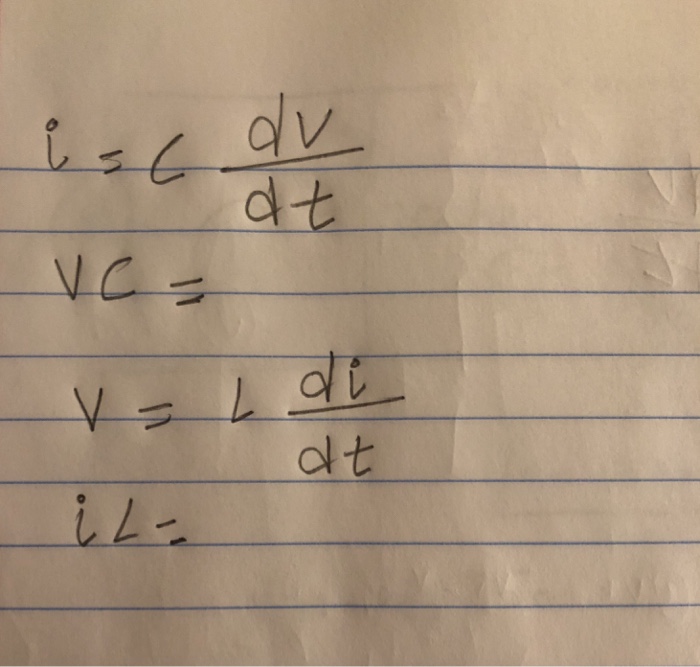 i = C dv/dt
VC =
V = L di/dt
iL =